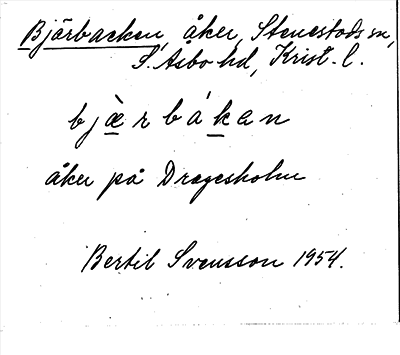 Bjärbacken, åker, Stenestads sn,
S. Åsbo hd, Krist. l.
b j æ̀ r b á k a n
åker på Dragesholm
Bertil Svensson 1954.